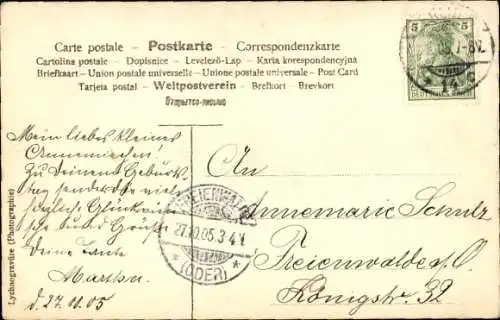 Carte postale - Postkarte - Correspondenzkarte
Cartolina postale - Dopisnice - Levelező-Lap - Karta korespondencyjna
Briefkaart - Union postale universelle - Unione postale universale - Post Card
Tarjeta postal - Weltpostverein - Brefkort - Brevkort
Открытое письмо
5 5
7-8V.
DEUTSCHES REICH
Lychnogravüre (Photographie)
Mein liebes kleines
Annemiechen!
Zu Deinem Geburts
tag sende Dir viele
herzliche Glückwün
sche und Grüße
Deine Tante
Martha.
d. 27.10.05
FREIENWALDE
27.10.05.3-4V.
* (ODER) *
An
Annemarie Schulz
Freienwalde a. O.
Königstr. 32